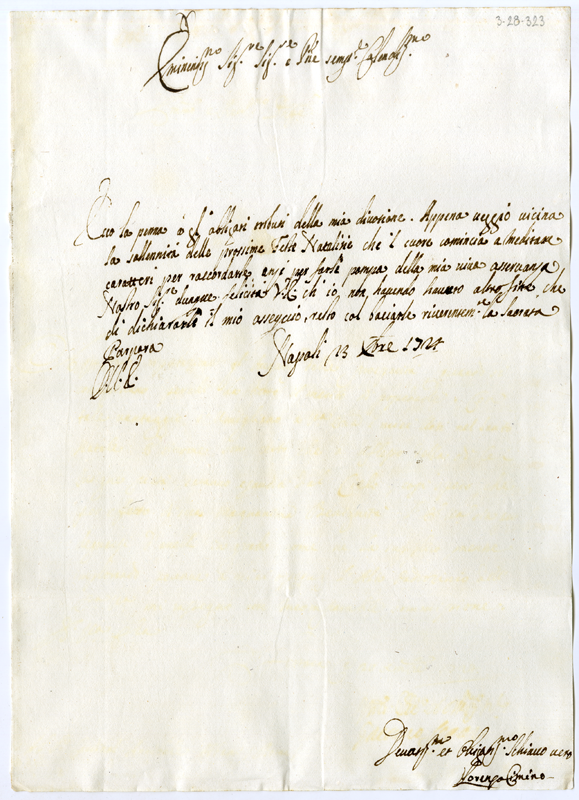 3-28-323
Eminentiss.mo Sig.re Sig.re e Pñe semp.e Colendiss.mo
Ecco la penna à gl'obligati tributi della mia divozione. Appena veggio vicina
la sollennità delle prossime Feste Natalizie che il cuore comincia a meditare
caratteri per raccordare anzi per farle pompa della mia viva osservanza
Nostro Sig.re dunque felicità V.E. ch'io non havendo havuto altro fine che
di dichiararle il mio ossequio, resto col baciarle riverentem.te la Sacrata
Porpora
Napoli 23 Xbre 1724
V.E.
Devotiss.mo et Obligatiss.mo Schiavo vero
Lorenzo Cimino